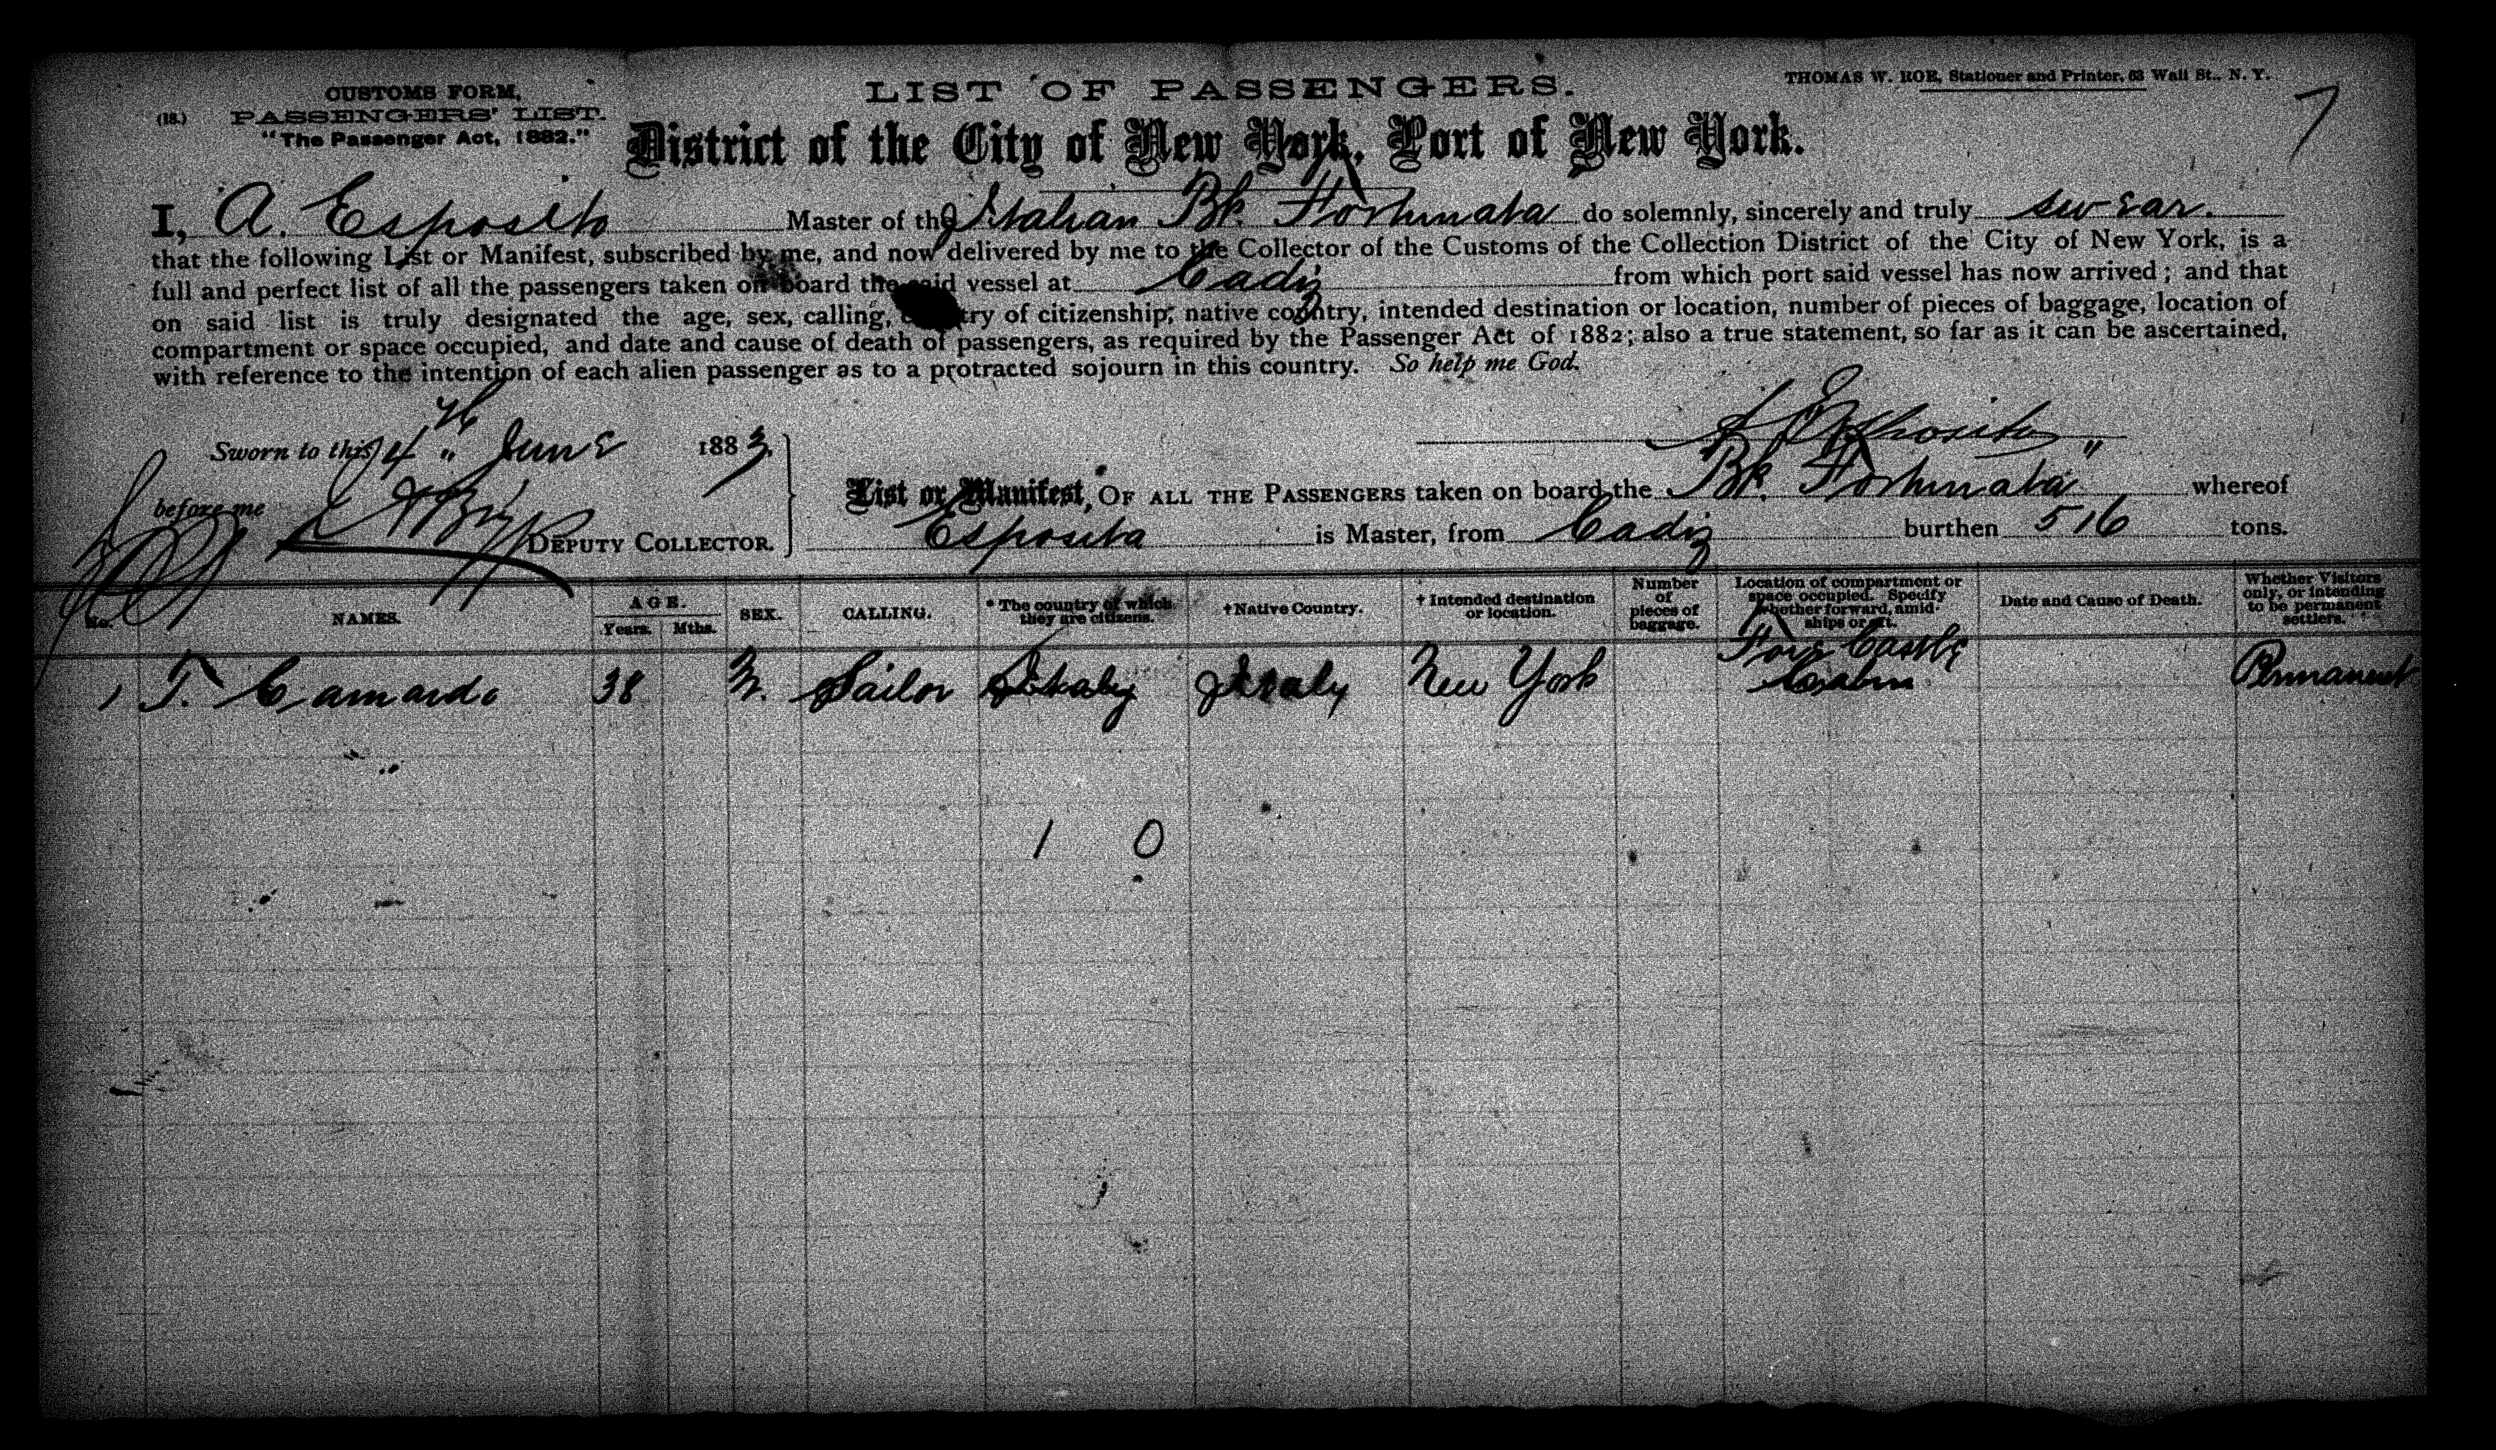 CUSTOMS FORM,
(18.) PASSENGERS' LIST.
"The Passenger Act, 1882."
LIST OF PASSENGERS.
THOMAS W. ROE, Stationer and Printer, 63 Wall St., N. Y.
7
District of the City of New York, Port of New York.
I, A. Esposito Master of the Italian Bk. Fortunata do solemnly, sincerely and truly swear.
that the following List or Manifest, subscribed by me, and now delivered by me to the Collector of the Customs of the Collection District of the City of New York, is a
full and perfect list of all the passengers taken on board the said vessel at Cadiz from which port said vessel has now arrived; and that
on said list is truly designated the age, sex, calling, country of citizenship, native country, intended destination or location, number of pieces of baggage, location of
compartment or space occupied, and date and cause of death of passengers, as required by the Passenger Act of 1882; also a true statement, so far as it can be ascertained,
with reference to the intention of each alien passenger as to a protracted sojourn in this country. So help me God.
A Esposito
Sworn to this 14th June 1883.
before me
DEPUTY COLLECTOR.
List or Manifest, OF ALL THE PASSENGERS taken on board the Bk. Fortunata" whereof
Esposito is Master, from Cadiz burthen 516 tons.
No. NAMES. AGE. Years. Mths. SEX. CALLING. * The country of which they are citizens. †Native Country. † Intended destination or location. Number of pieces of baggage. Location of compartment or space occupied. Specify whether forward, amidships or aft. Date and Cause of Death. Whether Visitors only, or intending to be permanent settlers.
1 T. Camardo 38 M. Sailor Italy Italy New York Fore Castle Cabin Permanent
1 0